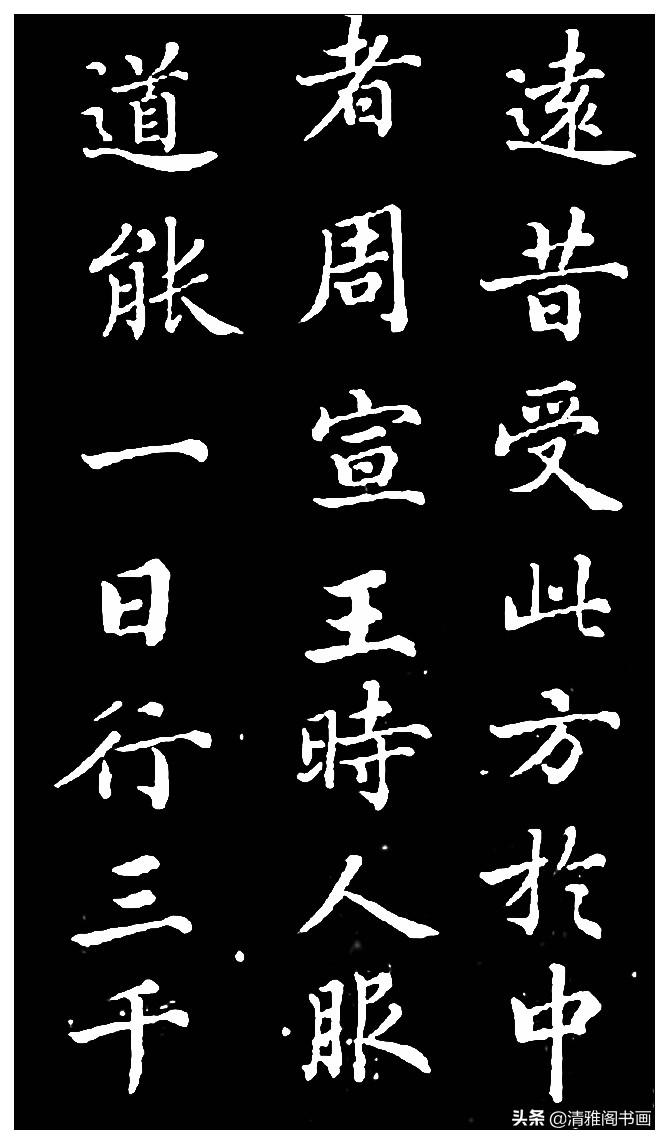 遠昔受此方於中
者周宣王時人服
道能一日行三千
头条 @清雅阁书画